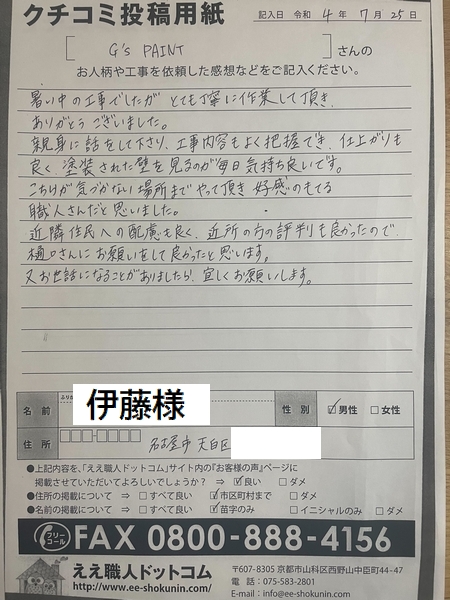 クチコミ投稿用紙
記入日 令和 4 年 7 月 25 日
[ G's PAINT ] さんの
お人柄や工事を依頼した感想などをご記入ください。
暑い中の工事でしたが とても丁寧に作業して頂き、
ありがとうございました。
親身に話をして下さり、工事内容もよく把握でき、仕上がりも
良く、塗装された壁を見るのが毎日気持ち良いです。
こちらが気づかない場所までやって頂き 好感のもてる
職人さんだと思いました。
近隣住民への配慮も良く、近所の方の評判も良かったので、
樋口さんにお願いをして良かったと思います。
又お世話になることがありましたら、宜しくお願いします。
名前 伊藤様 性別 ☑男性 □女性
住所 名古屋市天白区
●上記内容を、「ええ職人ドットコム」サイト内の『お客様の声』ページに
掲載させていただいてよろしいでしょうか? ⇒ ☑良い □ダメ
●住所の掲載について ⇒ □すべて良い ☑市区町村まで □ダメ
●名前の掲載について ⇒ □すべて良い ☑苗字のみ □イニシャルのみ □ダメ
フリーコール FAX 0800-888-4156
ええ職人ドットコム
http://www.ee-shokunin.com/
〒607-8305 京都市山科区西野山中臣町44-47
電話:075-583-2801
E-mail:info@ee-shokunin.com